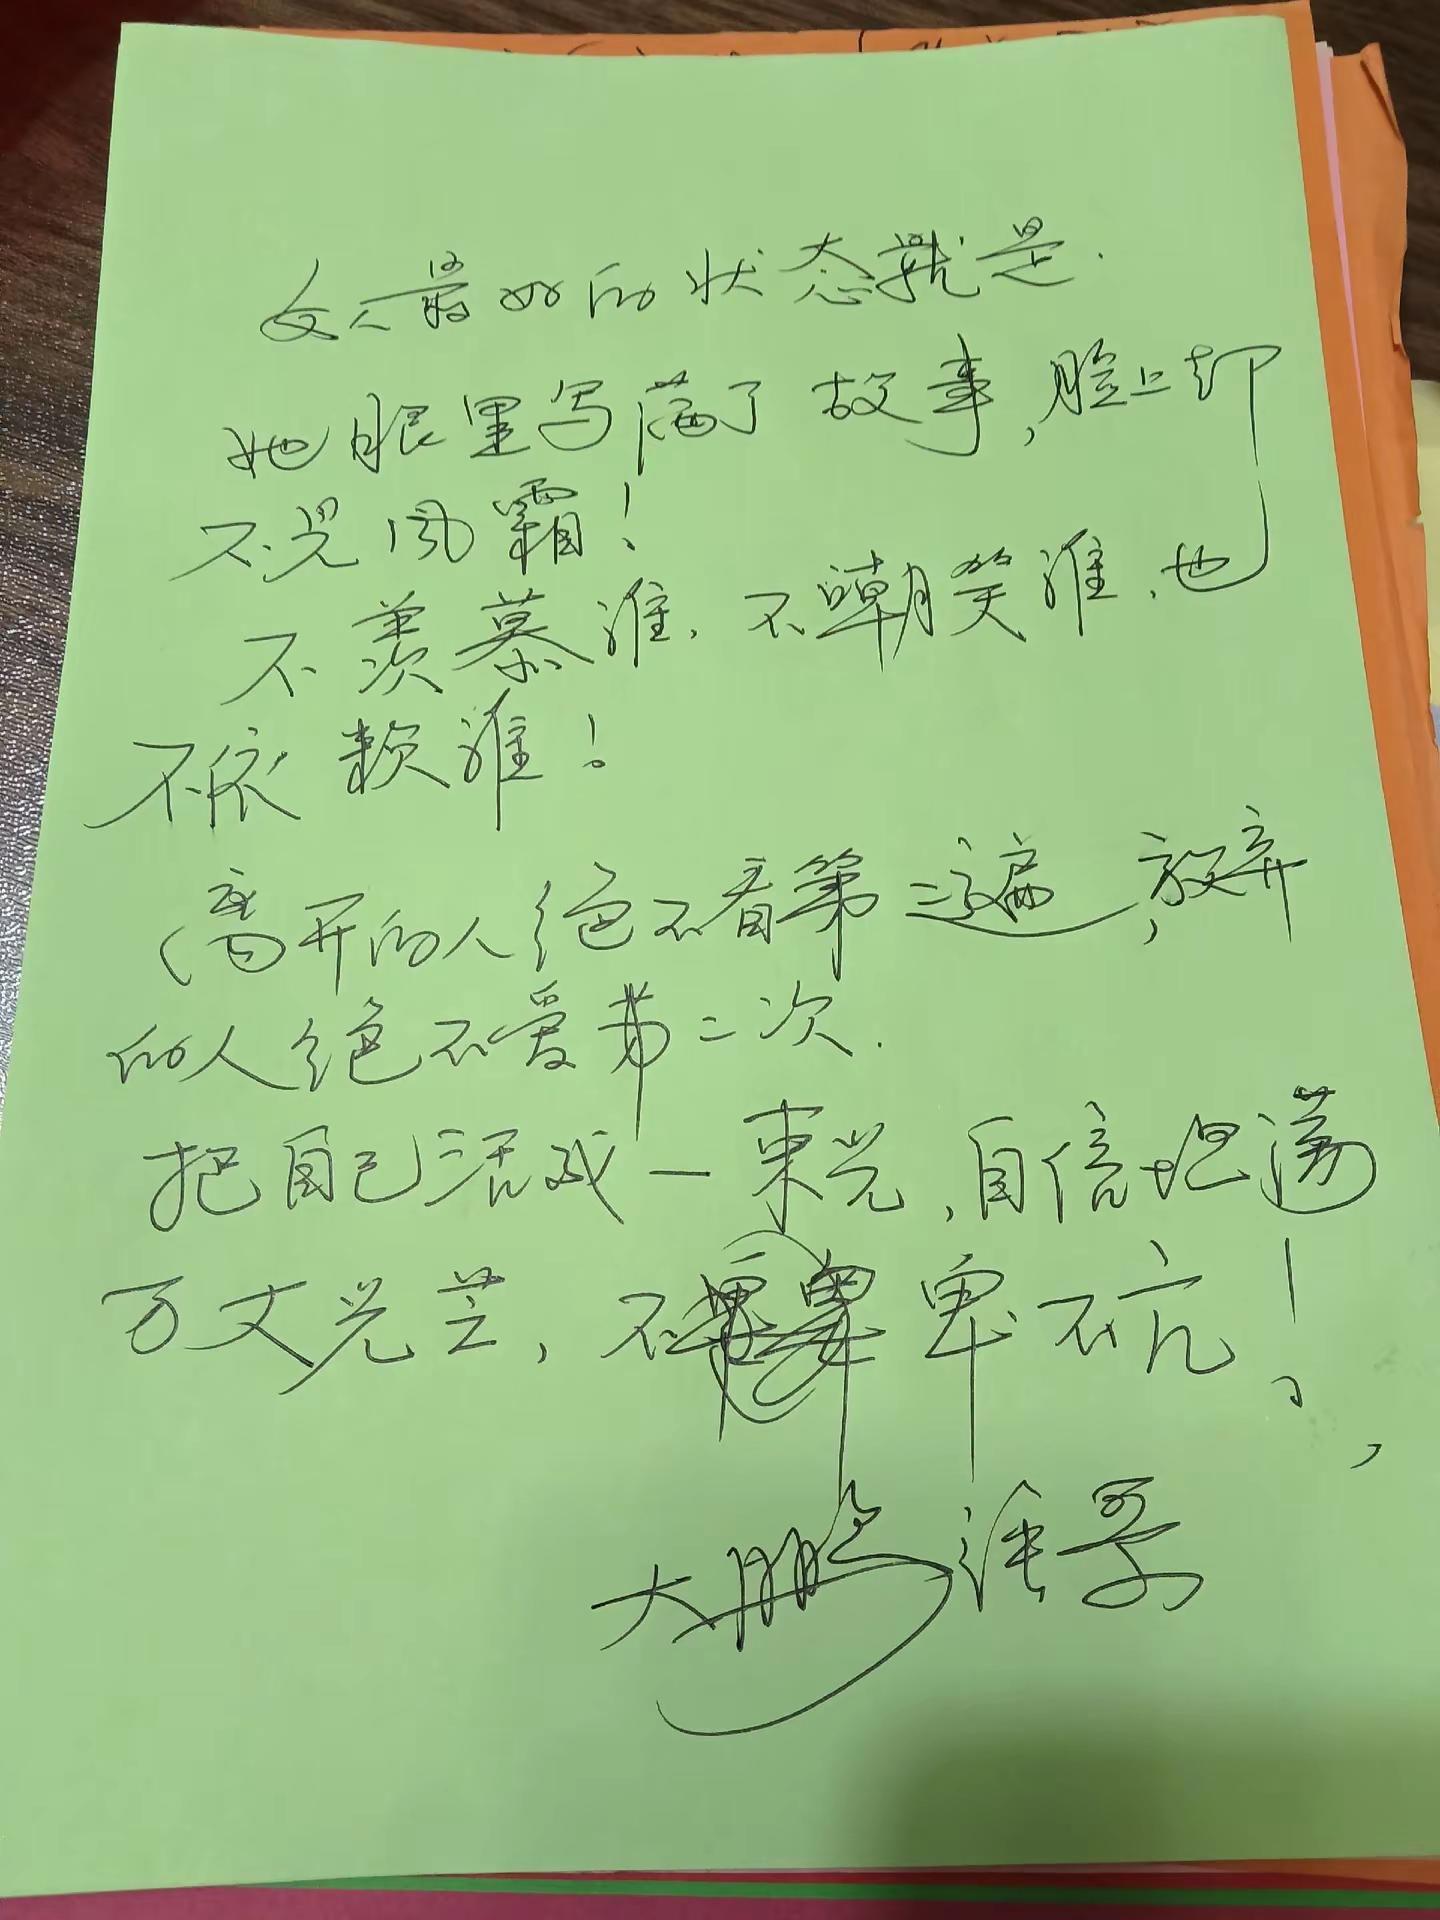 女人最好的状态就是.
她眼里写满了故事,脸上却
不见风霜!
不羡慕谁,不嘲笑谁,也
不依赖谁!
离开的人绝不看第二遍,放弃
的人绝不爱第二次.
把自己活成一束光,自信坦荡
万丈光芒,不卑不亢!
大鹏